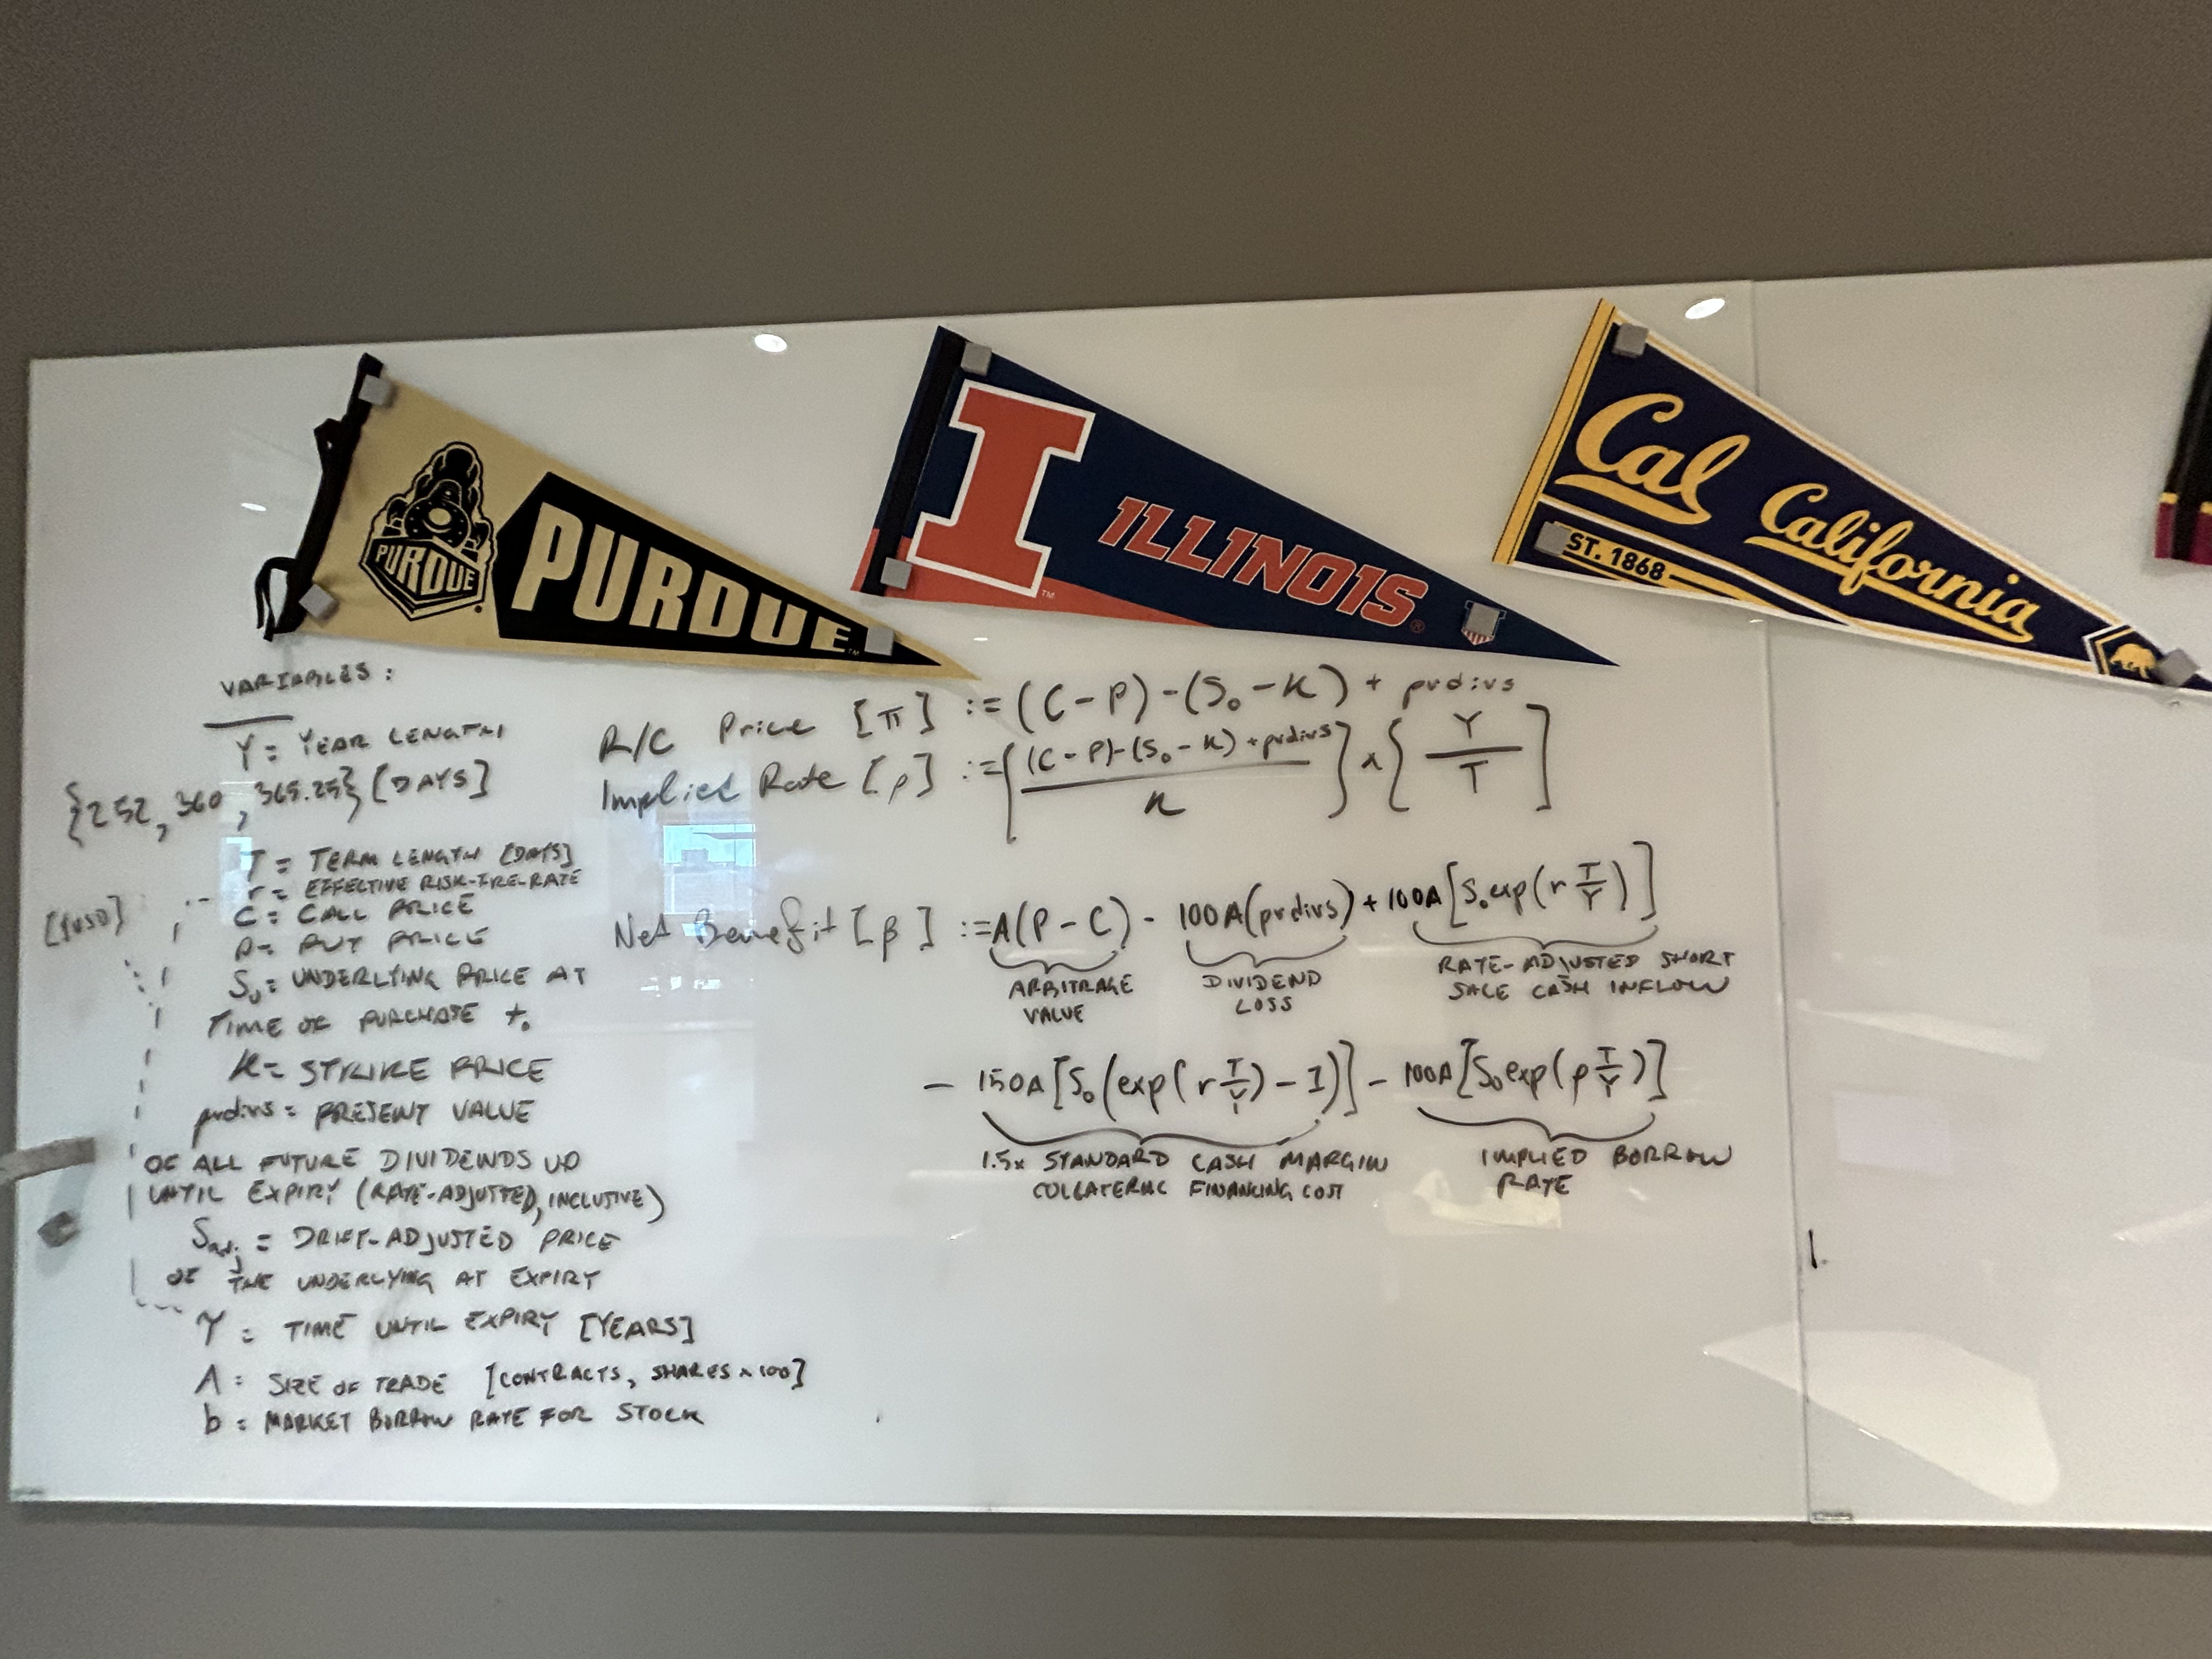 PURDUE
PURDUE
I
ILLINOIS
Cal California
ST. 1868
VARIABLES:
Y = YEAR LENGTH
{252, 360, 365.25} [DAYS]
T = TERM LENGTH [DAYS]
r = EFFECTIVE RISK-FREE-RATE
[$USD]
C = CALL PRICE
P = PUT PRICE
S₀ = UNDERLYING PRICE AT
TIME OF PURCHASE t₀
K = STRIKE PRICE
pvdivs = PRESENT VALUE
OF ALL FUTURE DIVIDENDS UP
UNTIL EXPIRY (RATE-ADJUSTED, INCLUSIVE)
S_adj = DRIFT-ADJUSTED PRICE
OF THE UNDERLYING AT EXPIRY
= TIME UNTIL EXPIRY [YEARS]
A = SIZE OF TRADE [CONTRACTS, SHARES x 100]
b = MARKET BORROW RATE FOR STOCK
R/C Price [π] := (C-P) - (S₀-K) + pvdivs
Implied Rate [ρ] := [(C-P)-(S₀-K)+pvdivs / K] x [Y / T]
Net Benefit [β] := A(P-C) - 100A(pvdivs) + 100A[S₀exp(r T/Y)]
ARBITRAGE VALUE
DIVIDEND LOSS
RATE-ADJUSTED SHORT
SALE CASH INFLOW
- 150A[S₀(exp(r T/Y)-1)] - 100A[S₀exp(ρ T/Y)]
1.5x STANDARD CASH MARGIN
COLLATERAL FINANCING COST
IMPLIED BORROW
RATE